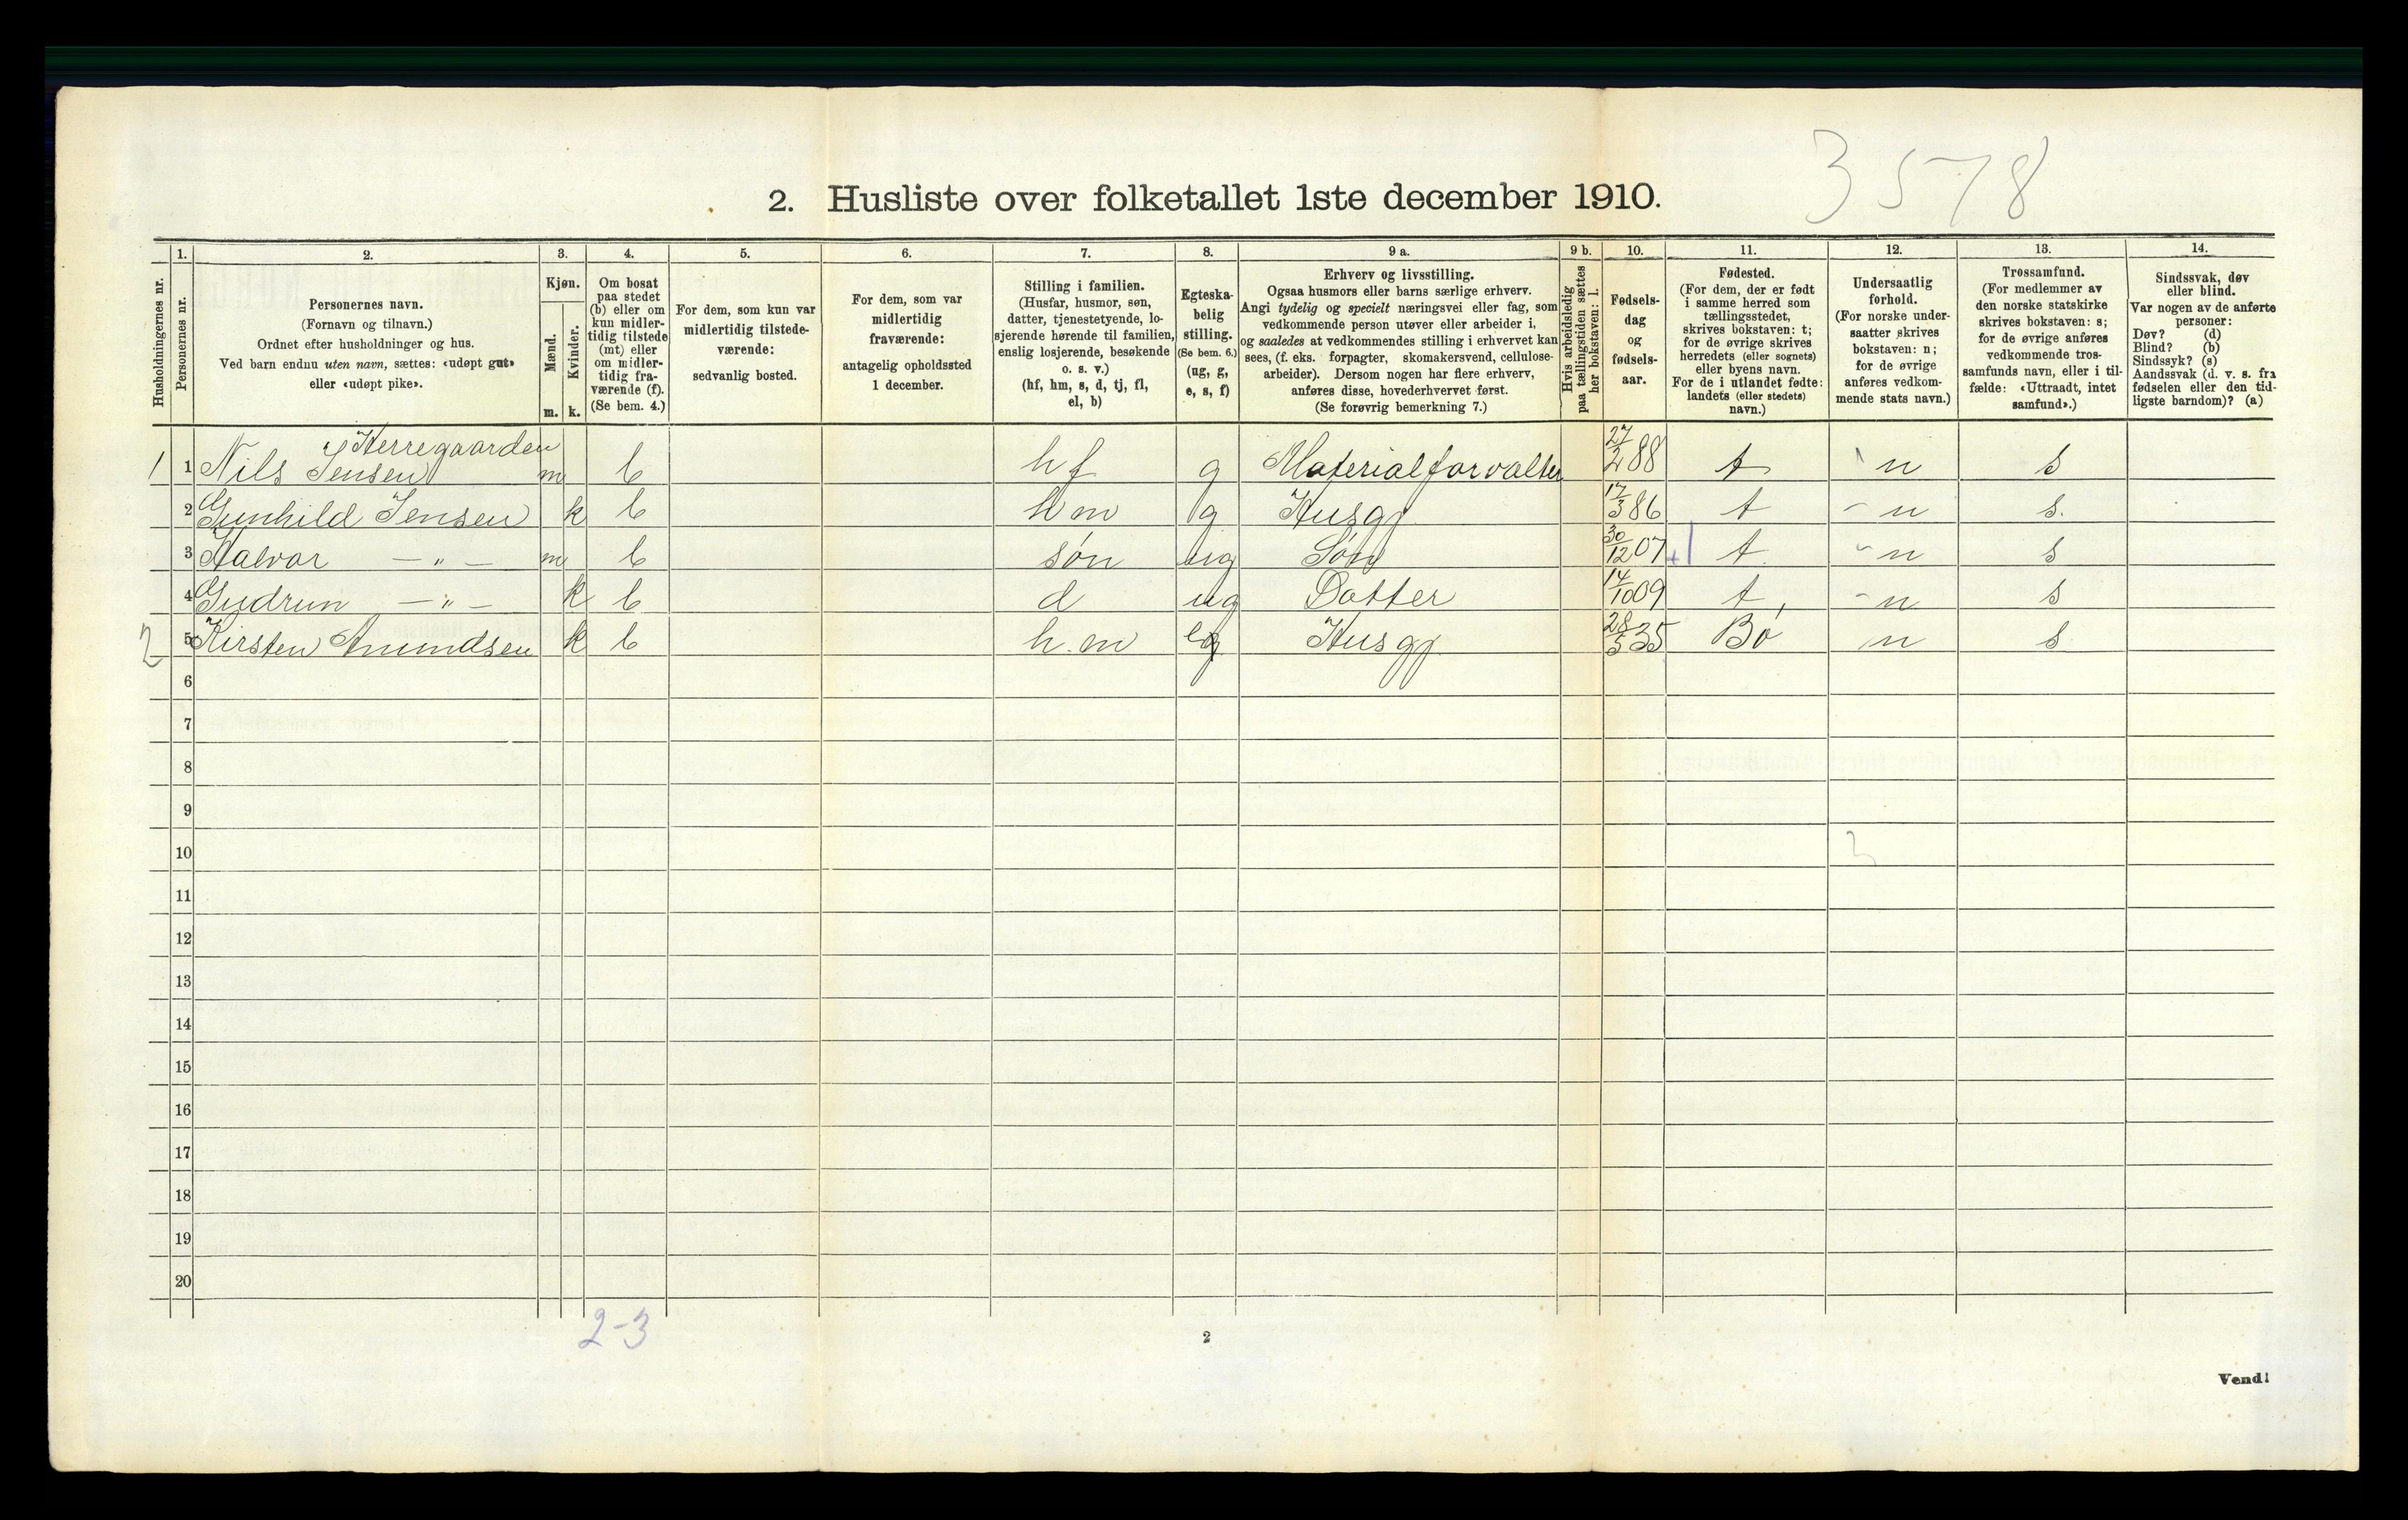 3578
2. Husliste over folketallet 1ste december 1910.
Husholdningernes nr.
1.
Personernes nr.
2.
Personernes navn.
(Fornavn og tilnavn.)
Ordnet efter husholdninger og hus.
Ved barn endnu uten navn, sættes: «udøpt gut»
eller «udøpt pike».
3.
Kjøn.
Mænd.
Kvinder.
m. k.
4.
Om bosat
paa stedet
(b) eller om
kun midler-
tidig tilstede
(mt) eller
om midler-
tidig fra-
værende (f).
(Se bem. 4.)
5.
For dem, som kun var
midlertidig tilstede-
værende:
sedvanlig bosted.
6.
For dem, som var
midlertidig
fraværende:
antagelig opholdssted
1 december.
7.
Stilling i familien.
(Husfar, husmor, søn,
datter, tjenestetyende, lo-
sjerende hørende til familien,
enslig losjerende, besøkende
o. s. v.)
(hf, hm, s, d, tj, fl,
el, b)
8.
Egteska-
belig
stilling.
(Se bem. 6.)
(ug, g,
e, s, f)
9 a.
Erhverv og livsstilling.
Ogsaa husmors eller barns særlige erhverv.
Angi tydelig og specielt næringsvei eller fag, som
vedkommende person utøver eller arbeider i,
og saaledes at vedkommendes stilling i erhvervet kan
sees, (f. eks. forpagter, skomakersvend, cellulose-
arbeider). Dersom nogen har flere erhverv,
anføres disse, hovederhvervet først.
(Se forøvrig bemerkning 7.)
9 b.
Hvis arbeidsledig
paa tællingstiden sættes
her bokstaven: l.
10.
Fødsels-
dag
og
fødsels-
aar.
11.
Fødested.
(For dem, der er født
i samme herred som
tællingsstedet,
skrives bokstaven: t;
for de øvrige skrives
herredets (eller sognets)
eller byens navn.
For de i utlandet fødte:
landets (eller stedets)
navn.)
12.
Undersaatlig
forhold.
(For norske under-
saatter skrives
bokstaven: n;
for de øvrige
anføres vedkom-
mende stats navn.)
13.
Trossamfund.
(For medlemmer av
den norske statskirke
skrives bokstaven: s;
for de øvrige anføres
vedkommende tros-
samfunds navn, eller i til-
fælde: «Uttraadt, intet
samfund».)
14.
Sindssvak, døv
eller blind.
Var nogen av de anførte
personer:
Døv? (d)
Blind? (b)
Sindssyk? (s)
Aandssvak (d. v. s. fra
fødselen eller den tid-
ligste barndom)? (a)
Herregaarden
1 1 Nils Jensen m b hf g Materialforvalter 27/2 88 t n s
2 Gunhild Jensen k b hm g Husgj 17/3 86 t - n s.
3 Halvor — „ — m b søn ug Søn 30/12 07 t - n s
4 Gudrun — „ — k b d ug Datter 14/10 09 t, - n s
2 5 Kirsten Amundsen k b h.m Husgj 28/5 35 Bø n s
6
7
8
9
10
11
12
13
14
15
16
17
18
19
20
2-3
2
Vend!